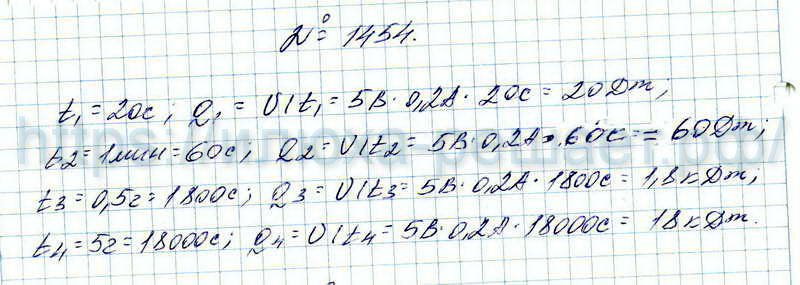 № 1454.
t₁ = 20с; Q₁ = UIt₁ = 5В · 0,2А · 20с = 20Дж;
t₂ = 1мин = 60с; Q₂ = UIt₂ = 5В · 0,2А · 60с = 60Дж;
t₃ = 0,5г = 1800с; Q₃ = UIt₃ = 5В · 0,2А · 1800с = 1,8кДж;
t₄ = 5г = 18000с; Q₄ = UIt₄ = 5В · 0,2А · 18000с = 18кДж.